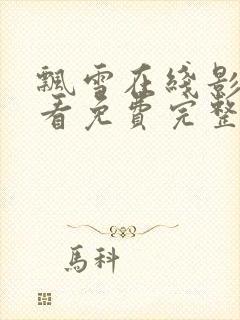 飄雪在綫影
看免費完整
馬科